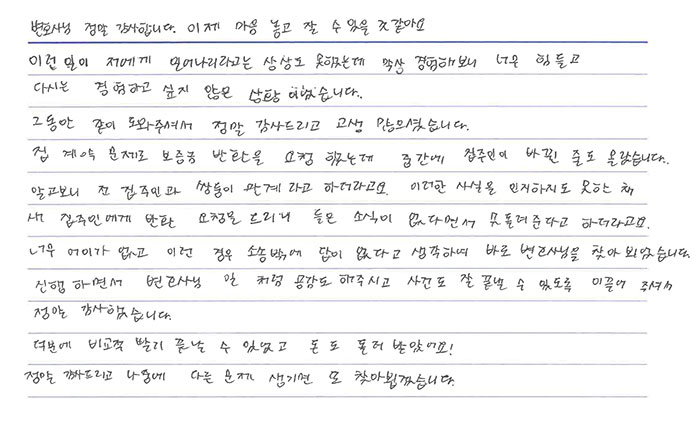 변호사님 정말 감사합니다. 이제 마음 놓고 잘 수 있을 것 같아요
이런 일이 저에게 일어나리라고는 상상도 못했는데 막상 경험해보니 너무 힘들고
다시는 경험하고 싶지 않은 상황 이었습니다.
그동안 같이 도와주셔서 정말 감사드리고 고생 많으셨습니다.
집 계약 문제로 보증금 반환을 요청 했는데 중간에 집주인이 바뀐 줄도 몰랐습니다.
알고보니 전 집주인과 쌍둥이 관계 라고 하더라고요. 이러한 사실을 인지하지도 못한 채
새 집주인에게 반환 요청을 드리니 들은 소식이 없다면서 못돌려준다고 하더라고요.
너무 어이가 없고 이런 경우 소송밖에 답이 없다고 생각하여 바로 변호사님을 찾아 뵈었습니다.
진행 하면서 변호사님 일 처럼 공감도 해주시고 사건도 잘 끝낼 수 있도록 이끌어 주셔서
정말 감사했습니다.
덕분에 비교적 빨리 끝날 수 있었고 돈도 돌려 받았어요!
정말 감사드리고 나중에 다른 문제 생기면 또 찾아뵙겠습니다.